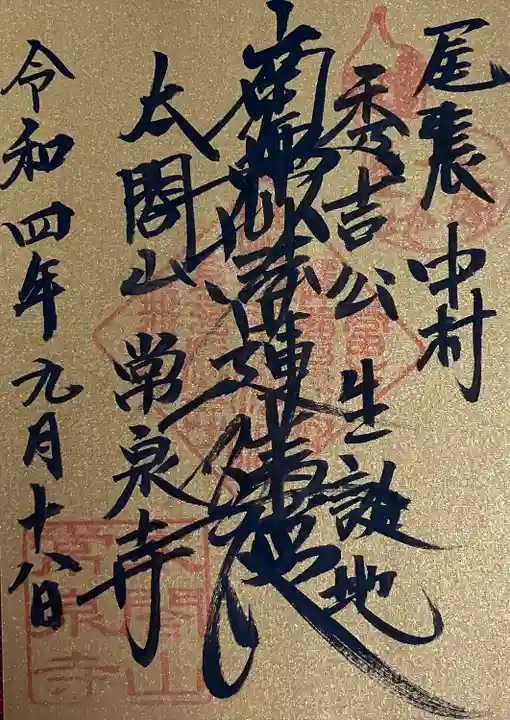 尾張 中村
秀吉公生誕地
南無妙法蓮華経
太閤山 常泉寺
令和四年九月十八日
太閤山
常泉寺